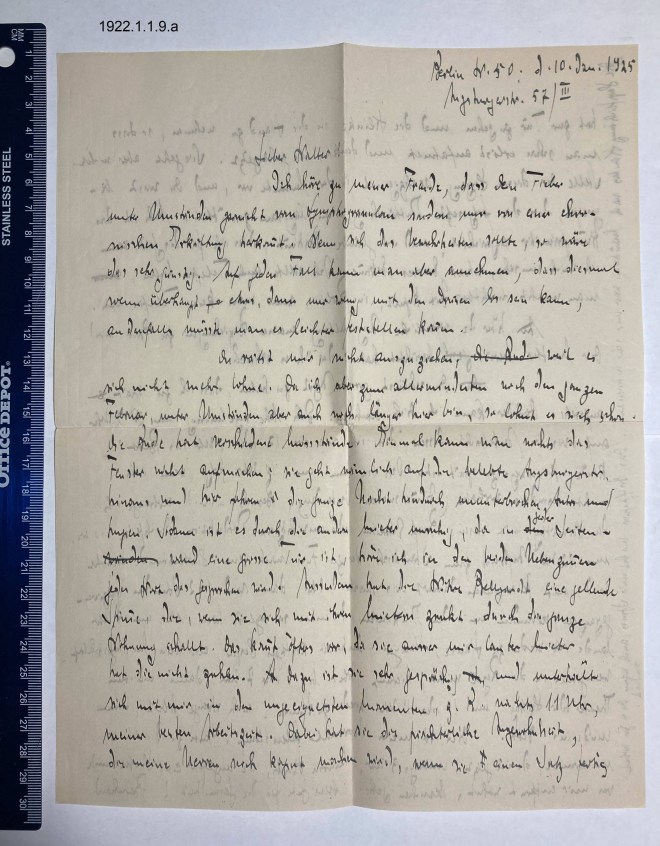 1922.1.1.9.a
MM
CM
STAINLESS STEEL
Office DEPOT
1 2 3 4 5 6 7 8 9 10 11 12 13 14 15 16 17 18 19 20 21 22 23 24 25 26 27 28 29 30
Berlin W. 50, d. 10. Jan. 1925
Augsburgerstr. 57/III
Lieber Walter
Ich höre zu meiner Freude, dass dein Fieber
unter Umständen garnicht von sondern nur von einer
Erkältung herkommt. Wenn sich das bewahrheiten sollte, so wäre
das sehr günstig. Auf jeden Fall kann man aber annehmen, dass diesmal
wenn überhaupt etwas, dann nur wenig mit den Drüsen los sein kann,
andernfalls müsste man es leichter feststellen können.
Du rätst mir nicht auszuziehen, weil es
sich nicht mehr lohne. Da ich aber zum allermindesten noch den ganzen
Februar, unter Umständen aber auch noch länger hier bin, so lohnt es sich schon.
Die Bude hat verschiedene Missstände. Einmal kann man nachts das
Fenster nicht aufmachen; sie geht nämlich auf die belebte Augsburgerstr.
hinaus und hier fahren die ganze Nacht hindurch ununterbrochen Autos und
hupen. Sodann ist es durch die andern Mieter unruhig, da in jeder Seiten-
wand eine grosse Tür ist, höre ich in den beiden Nebenzimmern
jedes Wort das gesprochen wird. Ausserdem hat die Witwe eine gellende
Stimme, die, wenn sie sich mit ihren Mietern zankt, durch die ganze
Wohnung schallt. Das kommt öfters vor, da sie ausser mir lauter Mieter
hat die nicht zahlen. Dazu ist sie sehr gesprächig und unterhält
sich mit mir in den ungeeignetsten Momenten, z. B. nachts 11 Uhr,
meiner besten Arbeitszeit. Dabei hat sie die fürchterliche Angewohnheit,
die meine Nerven noch kaputt machen wird, wenn sie einen Satz fertig